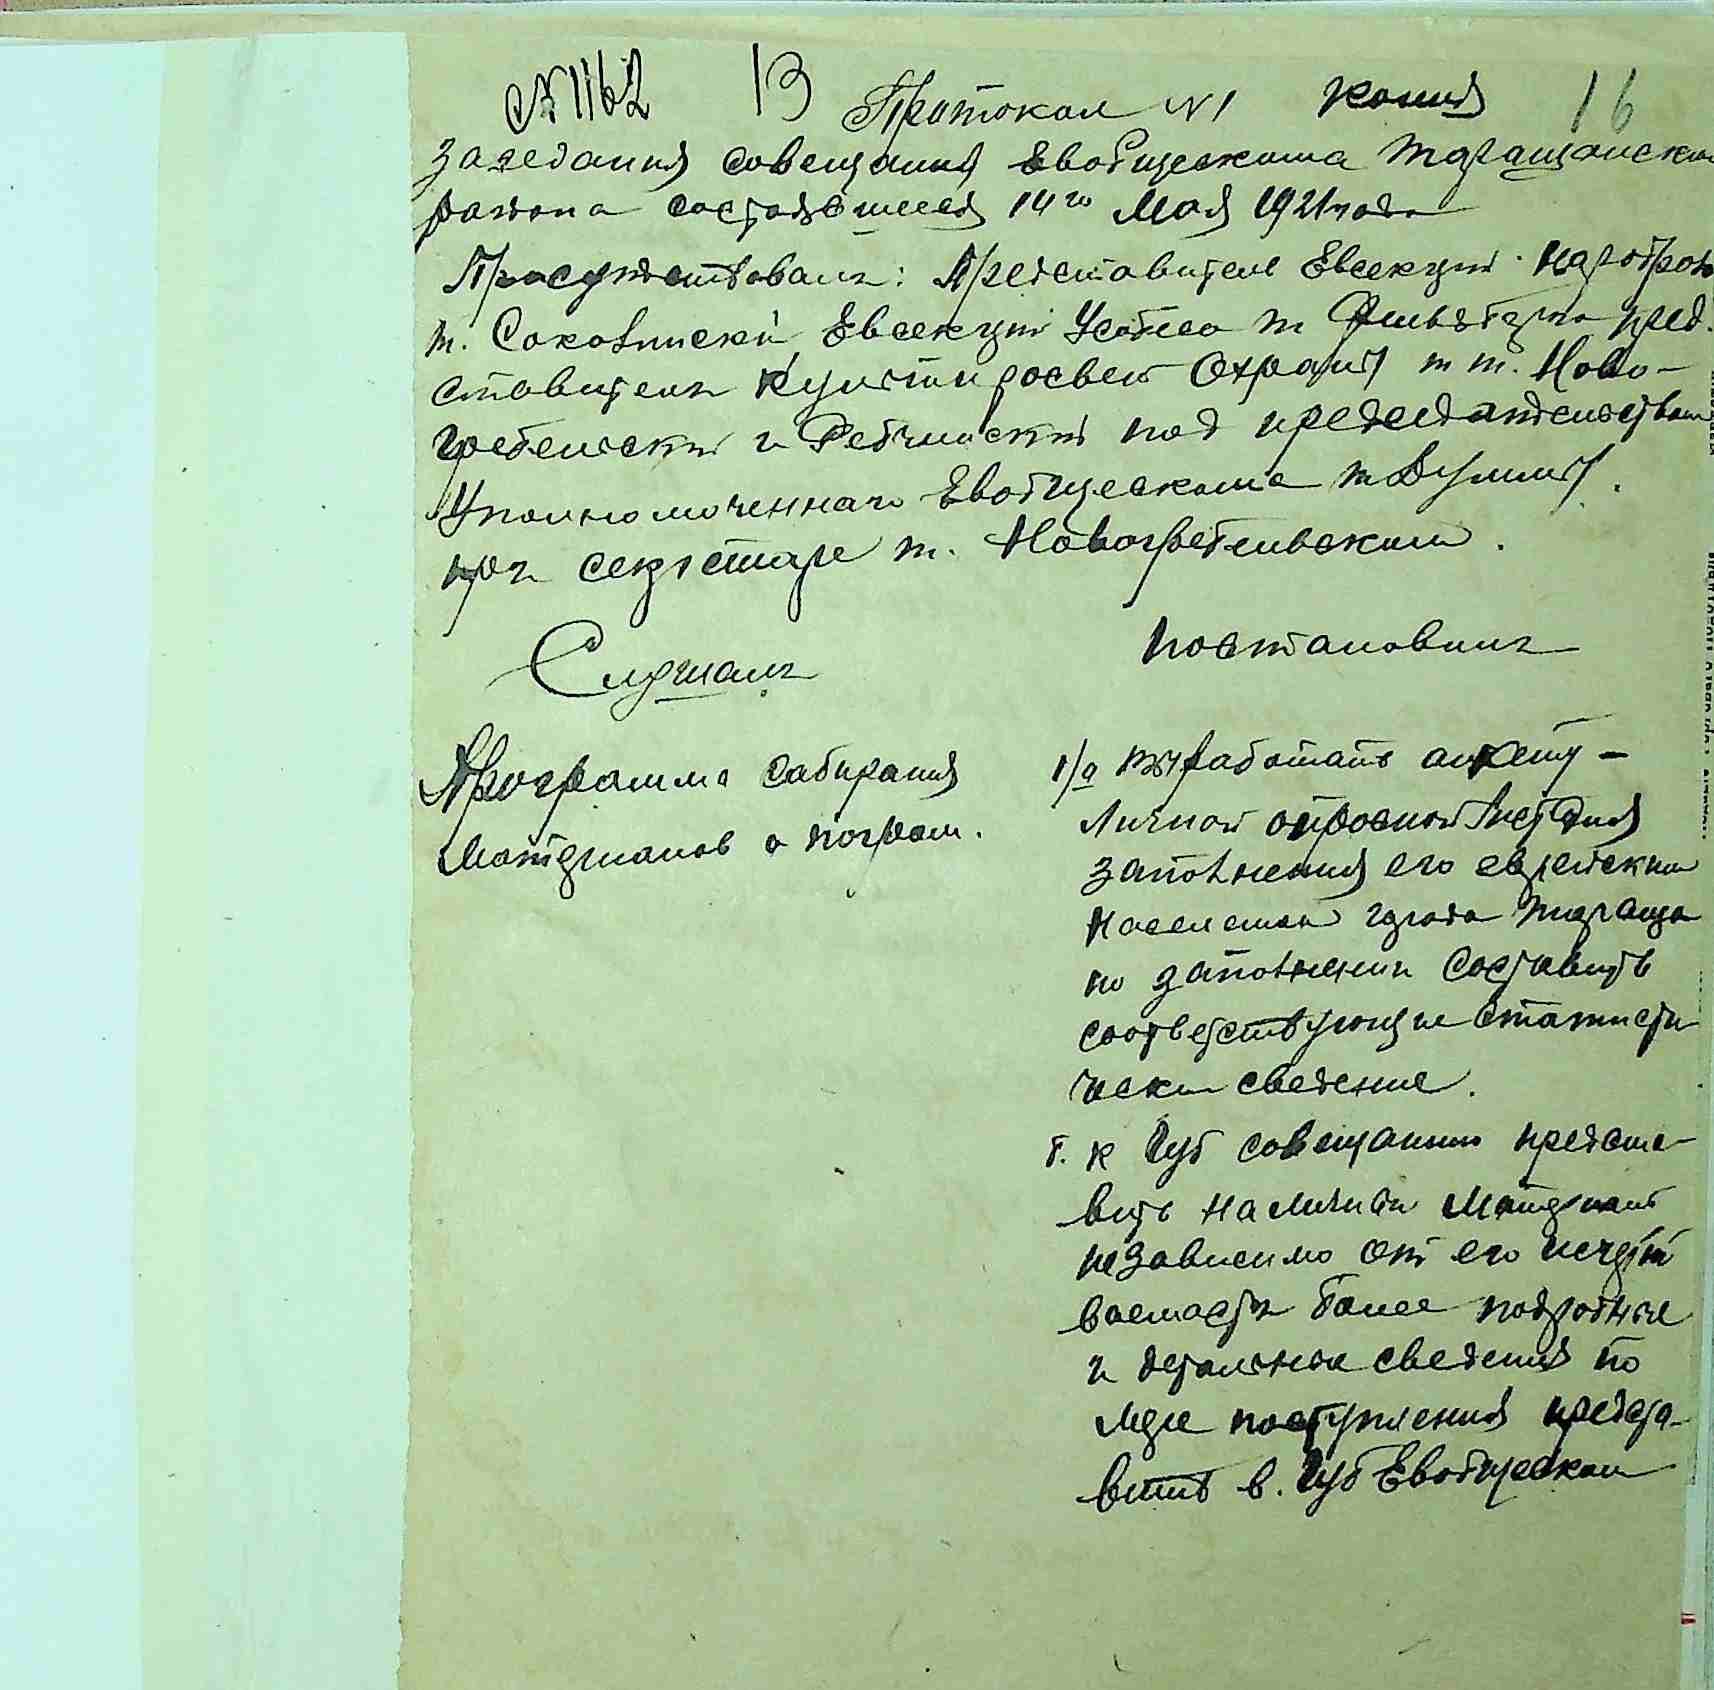 № 1162 13 Протокол №1 Копия 16
Заседания совещания Евобщескома Таращанско
района состоявшееся 14го Мая 1921 года
Присутствовали: Представители Евсекции Наробраз
т. Соколинский Евсекции т пред.
ставители Культпросвет Охраны т т. Ново-
гребельский и под председательством
Уполномоченнаго Евобщескома т Думин.
при секретаре т. Новогребельском.
Слушали Постановили
Программа собирания
Материалов о погром.
1/а Выработать анкету-
Личной опросной Лист для
заполнения его еврейским
Населением города Тараща
по заполнении составить
соответствующие статисти
чески сведение.
б. к Губ совещанию предста-
вить наличный Материал
независимо от его исчерпы
ваемости более подробные
и детальные сведения по
мере поступления предста-
вить в. Губ Евобщеском